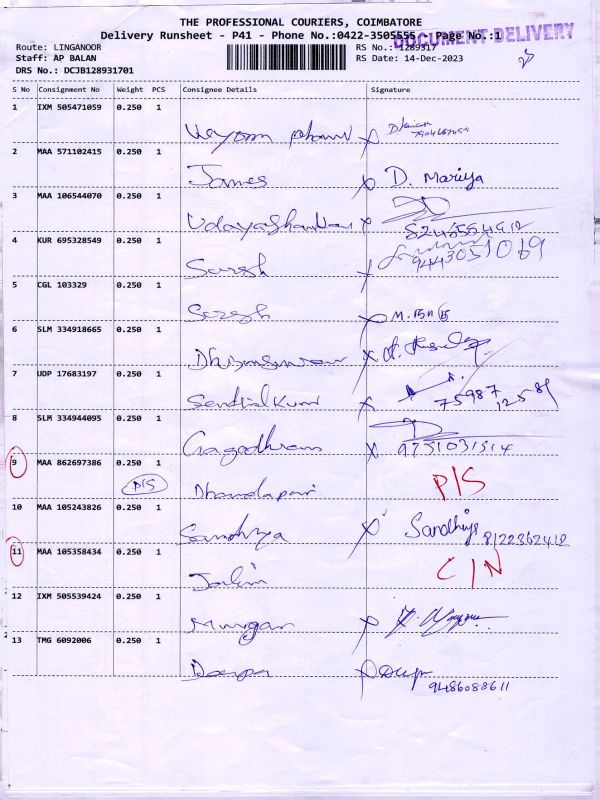 THE PROFESSIONAL COURIERS, COIMBATORE
Delivery Runsheet - P41 - Phone No.:0422-3505555 - Page No.:1
DOCUMENT DELIVERY
Route: LINGANOOR RS No.: 1289317
Staff: AP BALAN RS Date: 14-Dec-2023
DRS No.: DCJB128931701
S No Consignment No Weight PCS Consignee Details Signature
1 IXM 505471059 0.250 1
2 MAA 571102415 0.250 1
James D. Mariya
3 MAA 106544070 0.250 1
Udayashankar
4 KUR 695328549 0.250 1
Suresh
5 CGL 103329 0.250 1
Suresh
6 SLM 334918665 0.250 1
7 UDP 17683197 0.250 1
Senthilkumar 75987 12589
8 SLM 334944095 0.250 1
9731031514
9 MAA 862697386 0.250 1
P/S
Dhandapani P/S
10 MAA 105243826 0.250 1
Sandhya Sandhiya 8122362412
11 MAA 105358434 0.250 1
C/N
12 IXM 505539424 0.250 1
Murugan
13 TMG 6092006 0.250 1
Deepa
9486088611